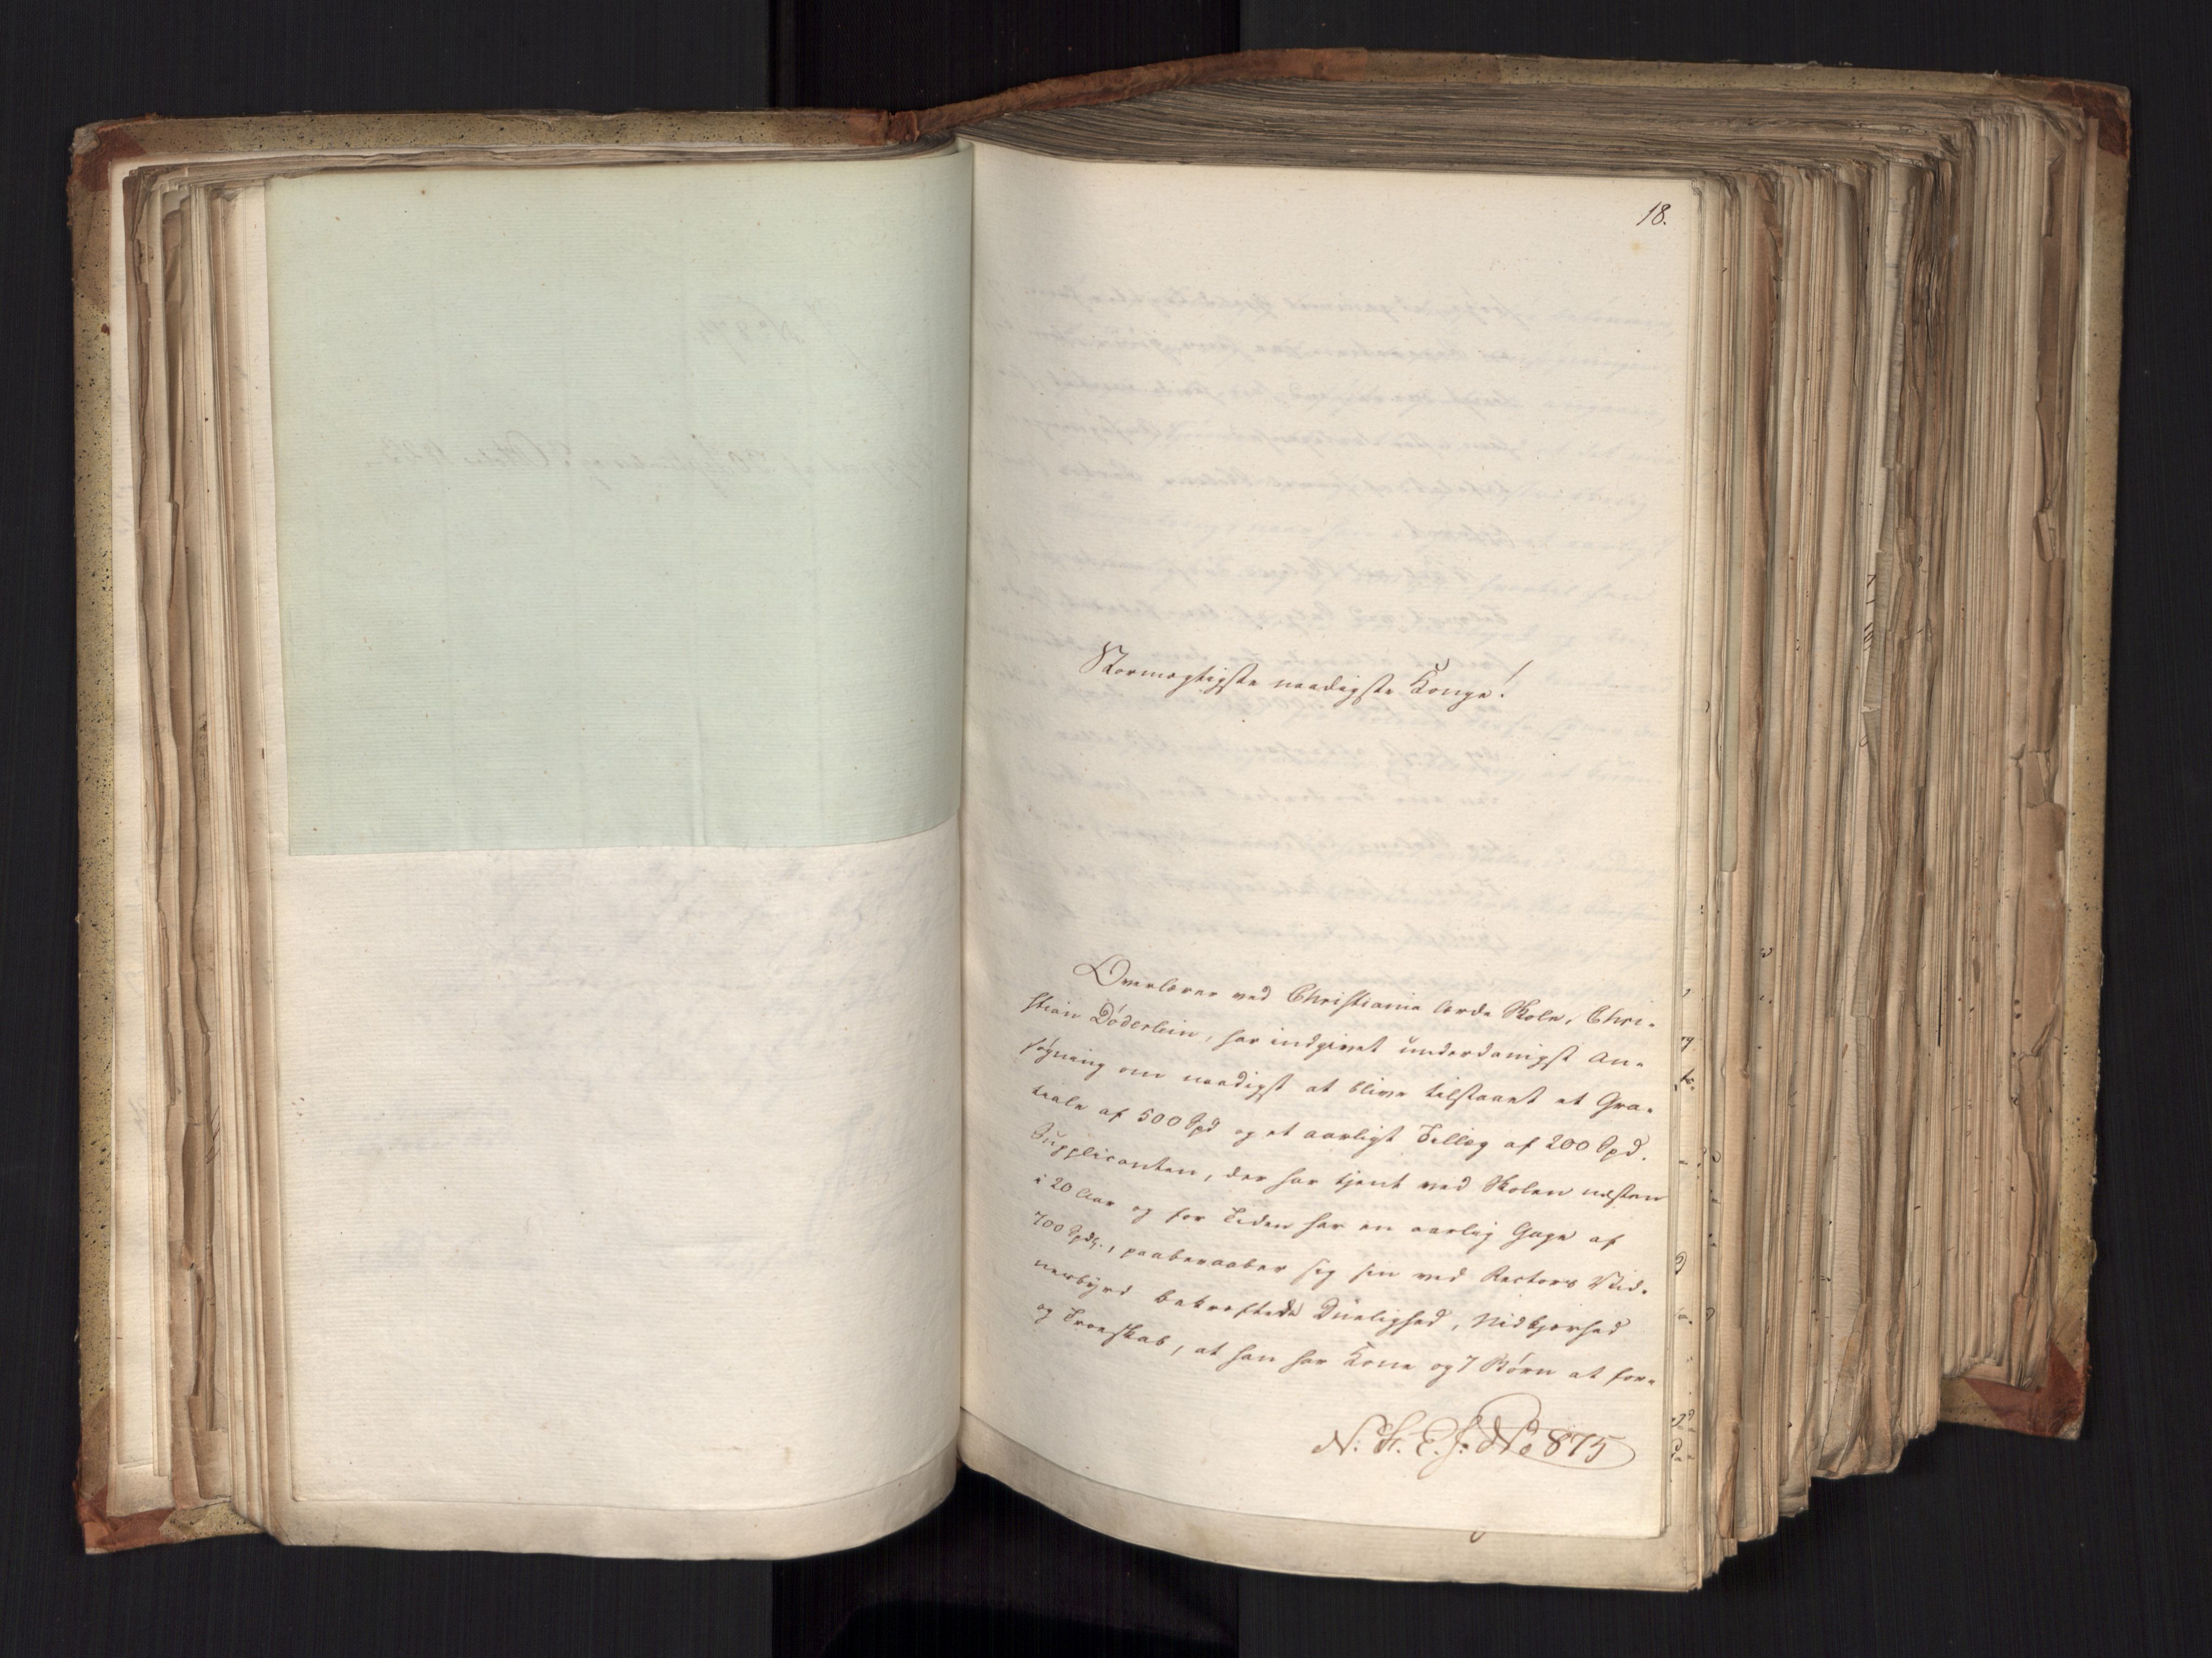 18.
Stormægtigste naadigste Konge!
Overlærer ved Christiania lærde Skole, Chri-
stian Döderlein, har indgivet underdanigst An-
søgning om naadigst at blive tilstaaet et Gra-
tiale af 500 Spd og et aarligt Tillæg af 200 Spd.
Supplicanten, der har tjent ved Skolen næsten
i 20 Aar og for Tiden har en aarlig Gage af
700 Spdr., paaberaaber sig sin ved Rectors Vid-
nesbyrd bekræftede Duelighed, Nidkjærhed
og Troeskab, at han har Kone og 7 Börn at for-
N: St. E. J: No 875